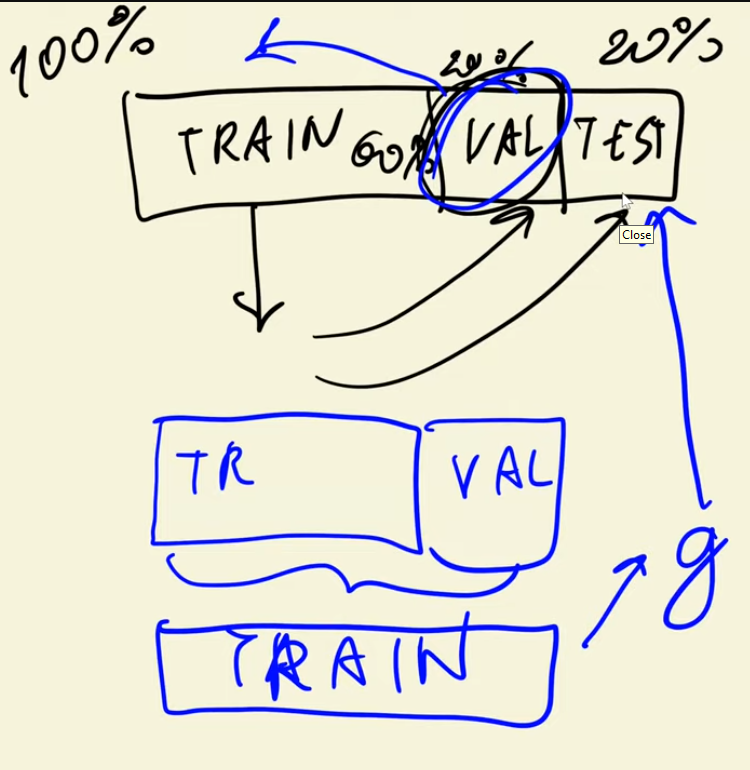 100% 20% 20%
TRAIN 60% VAL TEST
Close
TR VAL
g
TRAIN